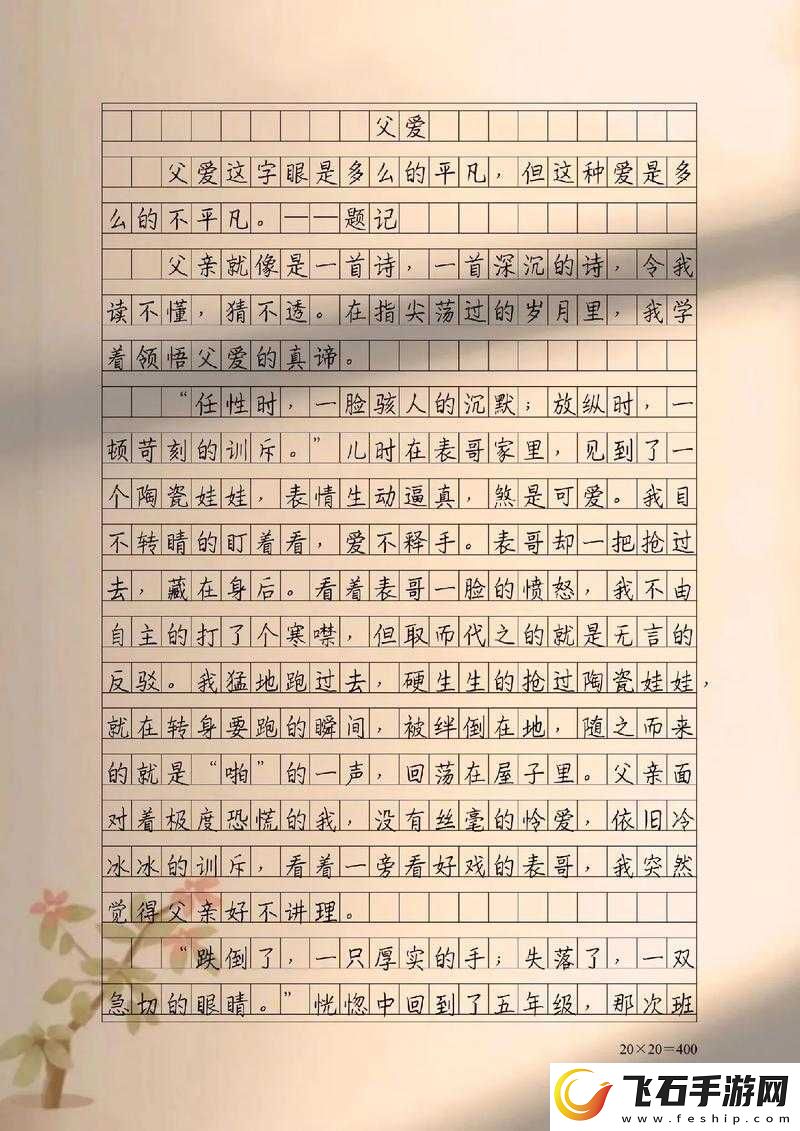 父爱
父爱这字眼是多么的平凡，但这种爱是多
么的不平凡。——题记
父亲就像是一首诗，一首深沉的诗，令我
读不懂，猜不透。在指尖荡过的岁月里，我学
着领悟父爱的真谛。
“任性时，一脸骇人的沉默；放纵时，一
顿苛刻的训斥。”儿时在表哥家里，见到了一
个陶瓷娃娃，表情生动逼真，煞是可爱。我目
不转睛的盯着看，爱不释手。表哥却一把抢过
去，藏在身后。看着表哥一脸的愤怒，我不由
自主的打了个寒噤，但取而代之的就是无言的
反驳。我猛地跑过去，硬生生的抢过陶瓷娃娃，
就在转身要跑的瞬间，被绊倒在地，随之而来
的就是“啪”的一声，回荡在屋子里。父亲面
对着极度恐慌的我，没有丝毫的怜爱，依旧冷
冰冰的训斥，看着一旁看好戏的表哥，我突然
觉得父亲好不讲理。
“跌倒了，一只厚实的手；失落了，一双
急切的眼睛。”恍惚中回到了五年级，那次班
20×20=400
飞石手游网
www.feship.com